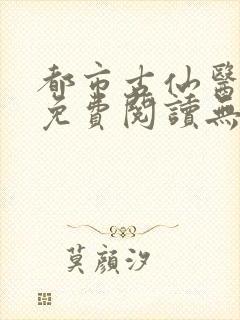 都市古仙醫
免費閱讀無
莫顏汐